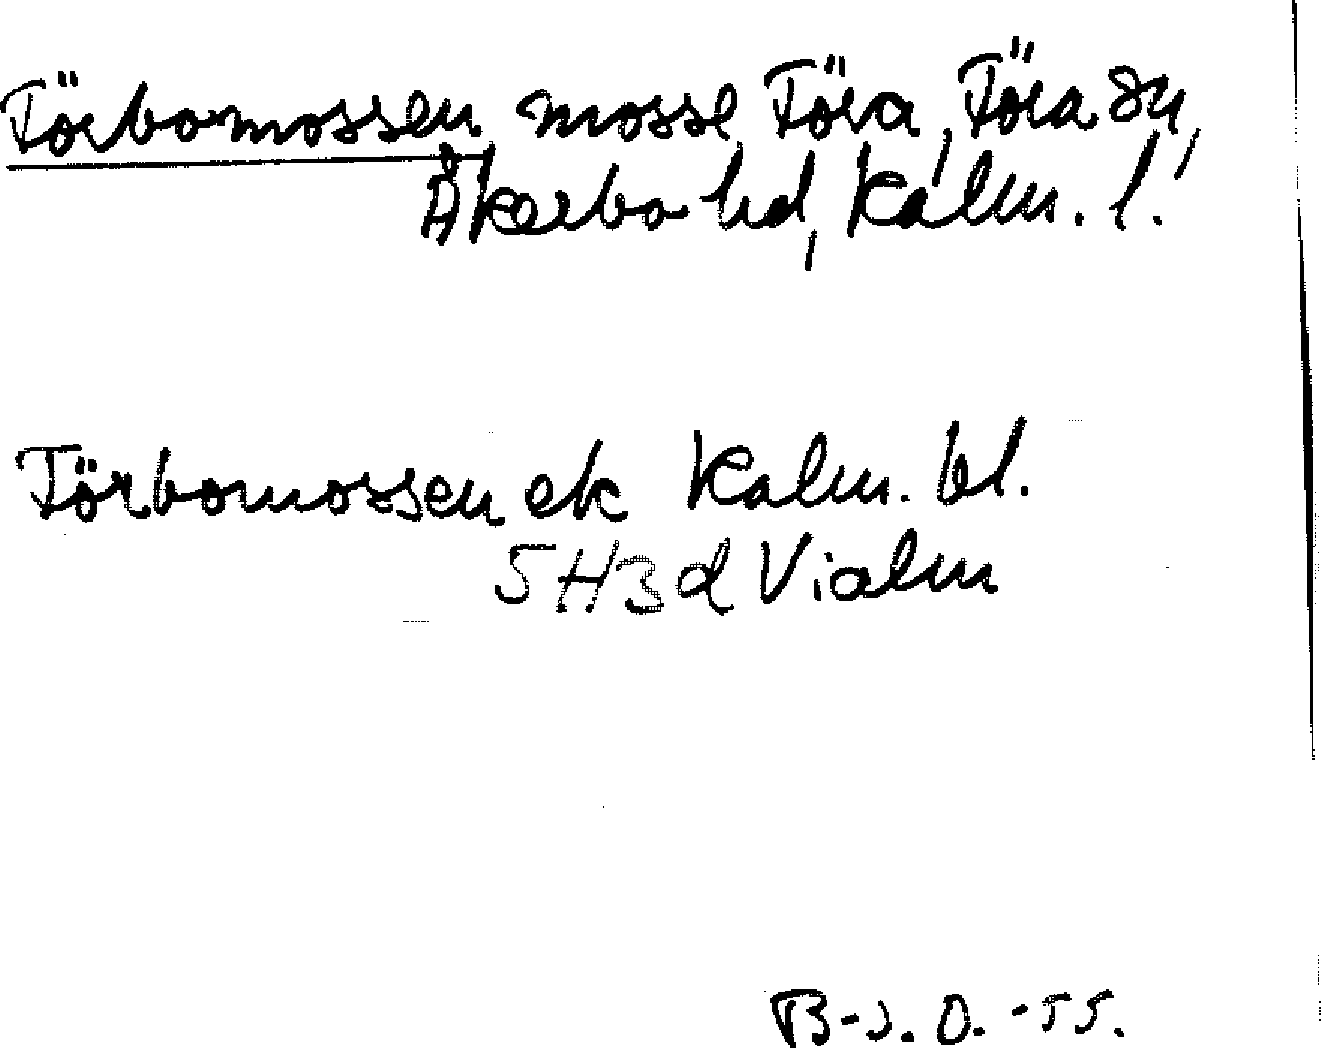 Törbomossen mosse Föra, Föra sn,
Åkerbo hd, Kalm. l.
Törbomossen ek Kalm. bl.
5H3d Vialm
B-J. O. -55.